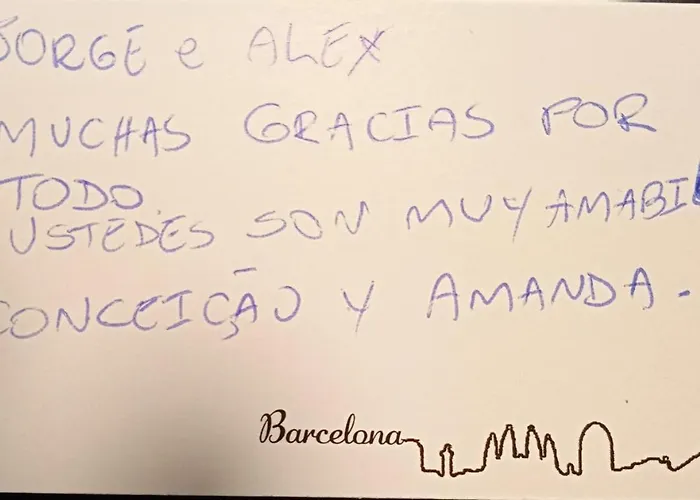 JORGE e ALEX
MUCHAS GRACIAS POR
TODO.
USTEDES SON MUY AMABIL
CONCEIÇÃO Y AMANDA.
Barcelona